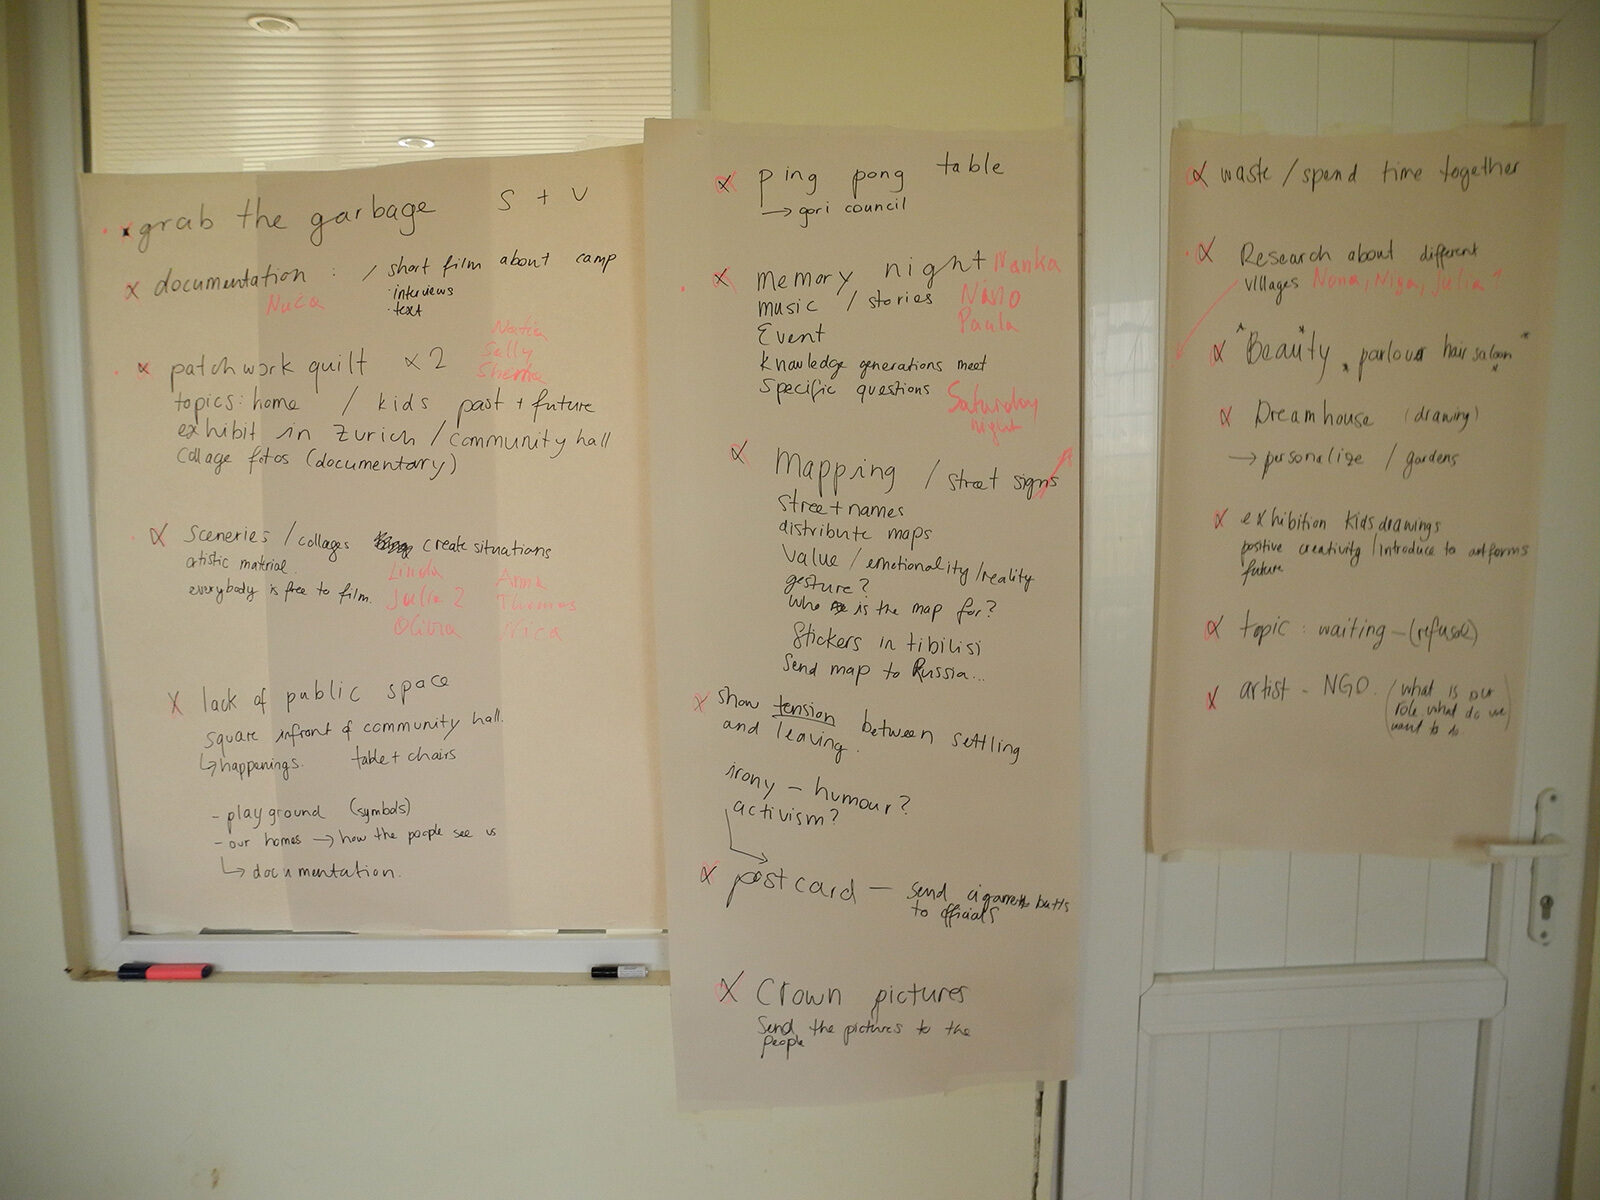 grab the garbage S + V
documentation : / short film about camp
Nuca
· interviews
· text
patchwork quilt x 2
Natia
Sally
topics: home / kids past + future
exhibit in Zurich / community hall
collage fotos (documentary)
sceneries / collages create situations
artistic material.
everybody is free to film.
Linda Anna
Julia ? Thomas
Olivia Nica
lack of public space
square infront of community hall.
happenings. table + chairs
- playground (symbols)
- our homes → how the people see us
documentation.
ping pong table
→ gori council
memory night Nanka
music / stories Nino
Paula
Event
Knowledge generations meet
Specific questions
Saturday
night
Mapping / street signs
street names
distribute maps
value / emotionality / reality
gesture?
who is the map for?
Stickers in tibilisi
Send map to Russia...
show tension between settling
and leaving.
irony - humour?
activism?
postcard — send cigarette butts
to officials
Crown pictures
Send the pictures to the
people
waste / spend time together
Research about different
villages Nona, Niga, Julia ?
"Beauty parlour hair saloon"
Dreamhouse (drawing)
→ personalize / gardens
exhibition kids drawings
positive creativity / introduce to artforms
future
topic : waiting - (refusal)
artist - NGO. (what is our
role what do we
want to do